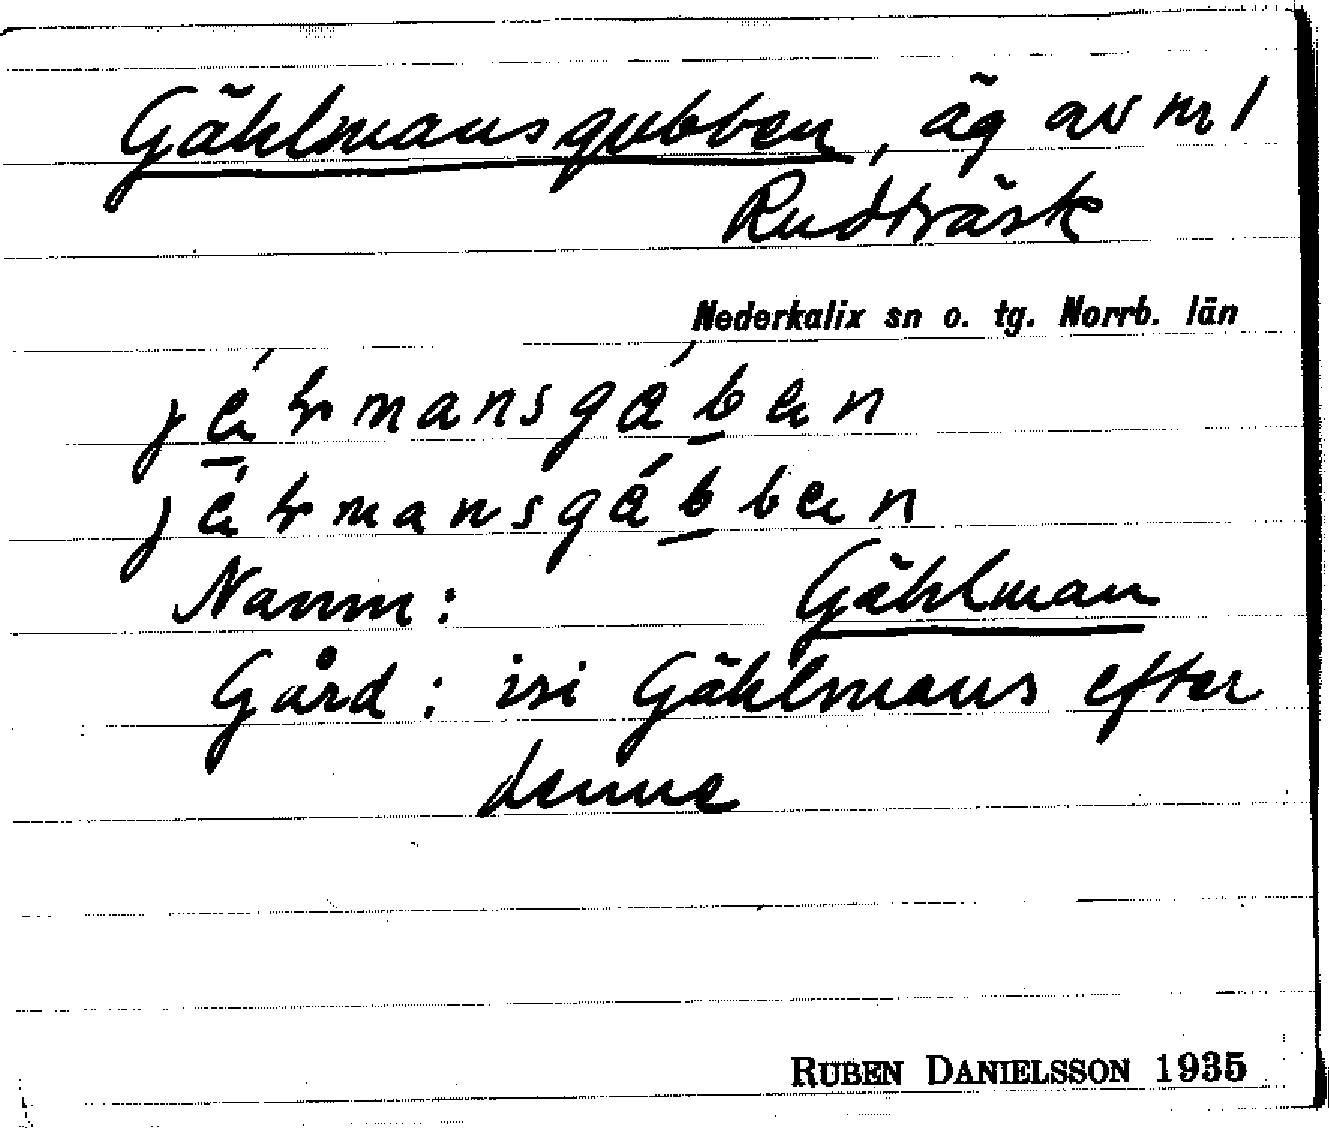 Gählmansgubben, äg av nr 1
Rudträsk
Nederkalix sn o. tg. Norrb. län
Namn: Gählman
Gård: isi Gählmans efter
denne
RUBEN DANIELSSON 1935